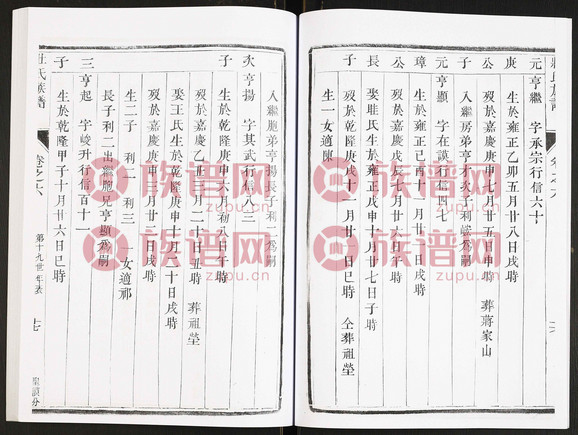 庚
元亨繼 字承宗行信六十
生於雍正乙卯五月廿八日戌時
公 歿於嘉慶庚申七月廿五日申時 葬蔣家山
子 入繼房弟亨才次子利 為嗣
元亨顯 字在 行信四七
璋 生於雍正己酉十月廿 日戌時
公 歿於嘉慶戊辰七月廿六日戌時
長 娶眭氏生於雍正戊申十月廿七日子時
子 歿於嘉慶庚 十一月廿一日 時 仝葬祖塋
生一女適陳
入繼胞弟亨揚長子利二為嗣
次亨揚 字其武行信八三
子 生於乾隆庚申六月初八日午時
歿於嘉慶乙丑三月二十日丑時 葬祖塋
娶王氏生於乾隆庚申十月二十日戌時
歿於嘉慶庚申三月廿二日戌時
生二子 利二 利三 一女適祁
長子利二出繼胞兄亨顯為嗣
三亨起 字峻升行信百十一
子 生於乾隆甲子十月廿六日巳時
莊氏族譜
卷之六
第十九世年表
十七
聚議分
族谱网
zupu.cn
族谱网
zupu.cn
族谱网
zupu.cn
族谱网
zupu.cn